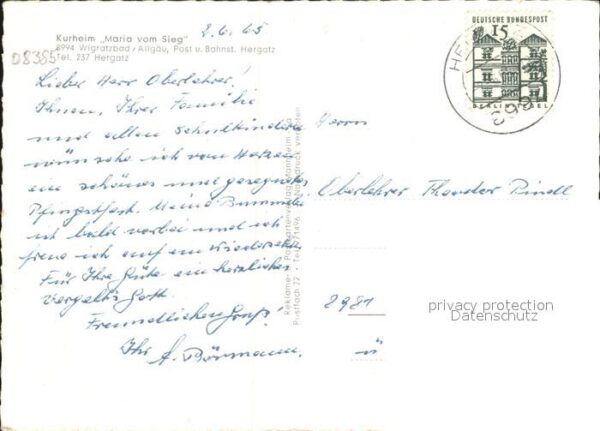 2.6.65
Kurheim „Maria vom Sieg"
8994 Wigratzbad / Allgäu, Post u. Bahnst. Hergatz
Tel. 237 Hergatz
08385
Lieber Herr Oberlehrer!
Ihnen, Ihrer Familie
und allen Schulkindern
wünsche ich von Herzen
ein schönes und gesegnetes
Pfingstfest. Meine
ist bald vorbei und ich
freue ich auf ein Wiedersehen
Für Ihre Güte ein herzliches
Vergelts Gott
Freundlichen Gruß!
Ihr A. Börmann.
DEUTSCHE BUNDESPOST
15
BERLIN TEGEL
HE
899
Herrn
Oberlehrer Theodor Riedl
8981
privacy protection
Datenschutz